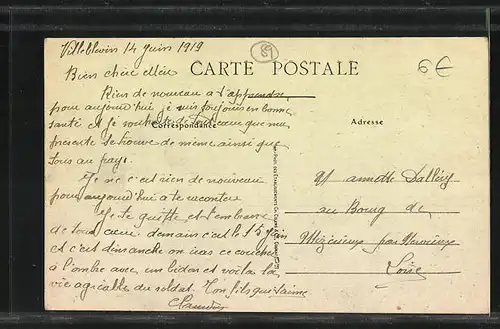 Villeblevin 14 juin 1919
89
6€
Bien chère Mère
CARTE POSTALE
Rien de nouveau a t'apprendre
pour aujourd'hui je suis toujours en bonne
santé et je souhaite de tout cœur que ma
Correspondance
Adresse
presente te trouve de meme ainsi que
tous au pays.
Je ne c'est rien de nouveau
pour aujourd'hui a te raconter
Je te quitte et t'embrasse
de tout cœur demain c'est le 15 juin
et c'est dimanche on iras ce coucher
à l'ombre avec un bidon et voila la
vie agréable du soldat. Ton fils qui t'aime
Claudius
au Bourg de
par
Loire